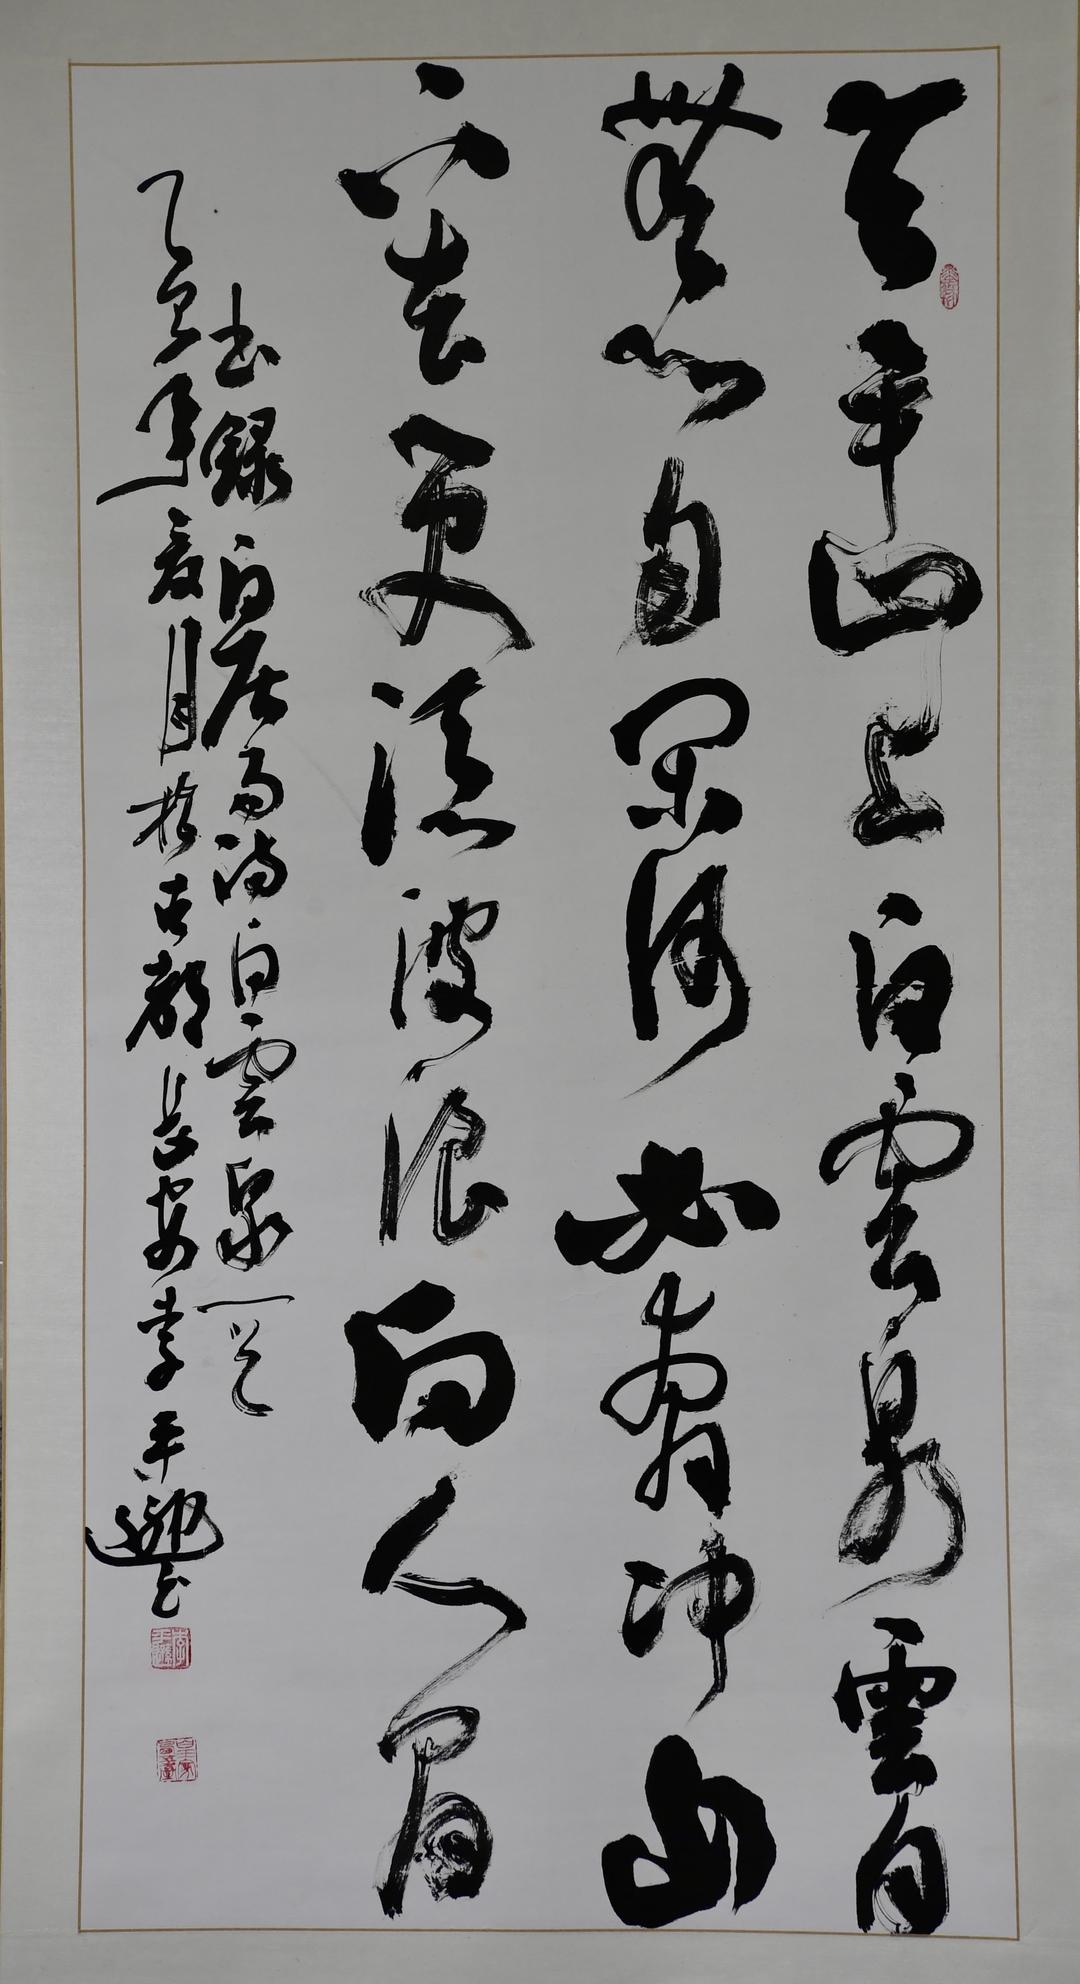 天平山上白雲泉雲自
無心自閑何必奔冲山
下去更添波浪向人間
书録白居易詩白雲泉一首
乙巳年夏月於古都長安李平书